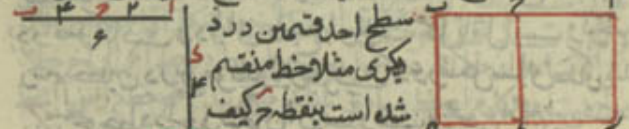 سطح احد قسمین در د
یکری مثلا خط منقسم
شده است بنقطه ح کیف
ب ۴ ح ۲
۶